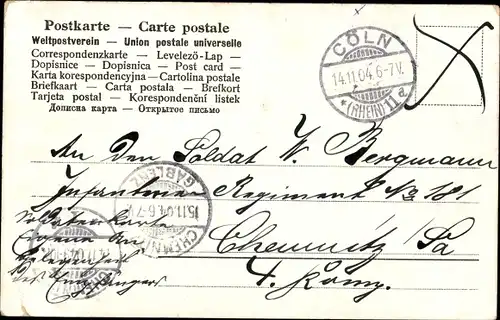 Postkarte — Carte postale
Weltpostverein — Union postale universelle
Correspondenzkarte — Levelezö-Lap —
Dopisnice — Dopisnica — Post card —
Karta korespondencyjna — Cartolina postale
Briefkaart — Carta postala — Brefkort
Tarjeta postal — Korespondenční listek
Дописна карта — Открытое письмо
CÖLN
14.11.04.6-7V.
*(RHEIN)11a
An den Soldat W. Bergmann
Infanterie Regiment No 181
Chemnitz Sa
4. Komp.
CHEMNITZ
15.11.04.6-7V.
GABLENZ
Eigene An
gelegenheit
des Empfängers